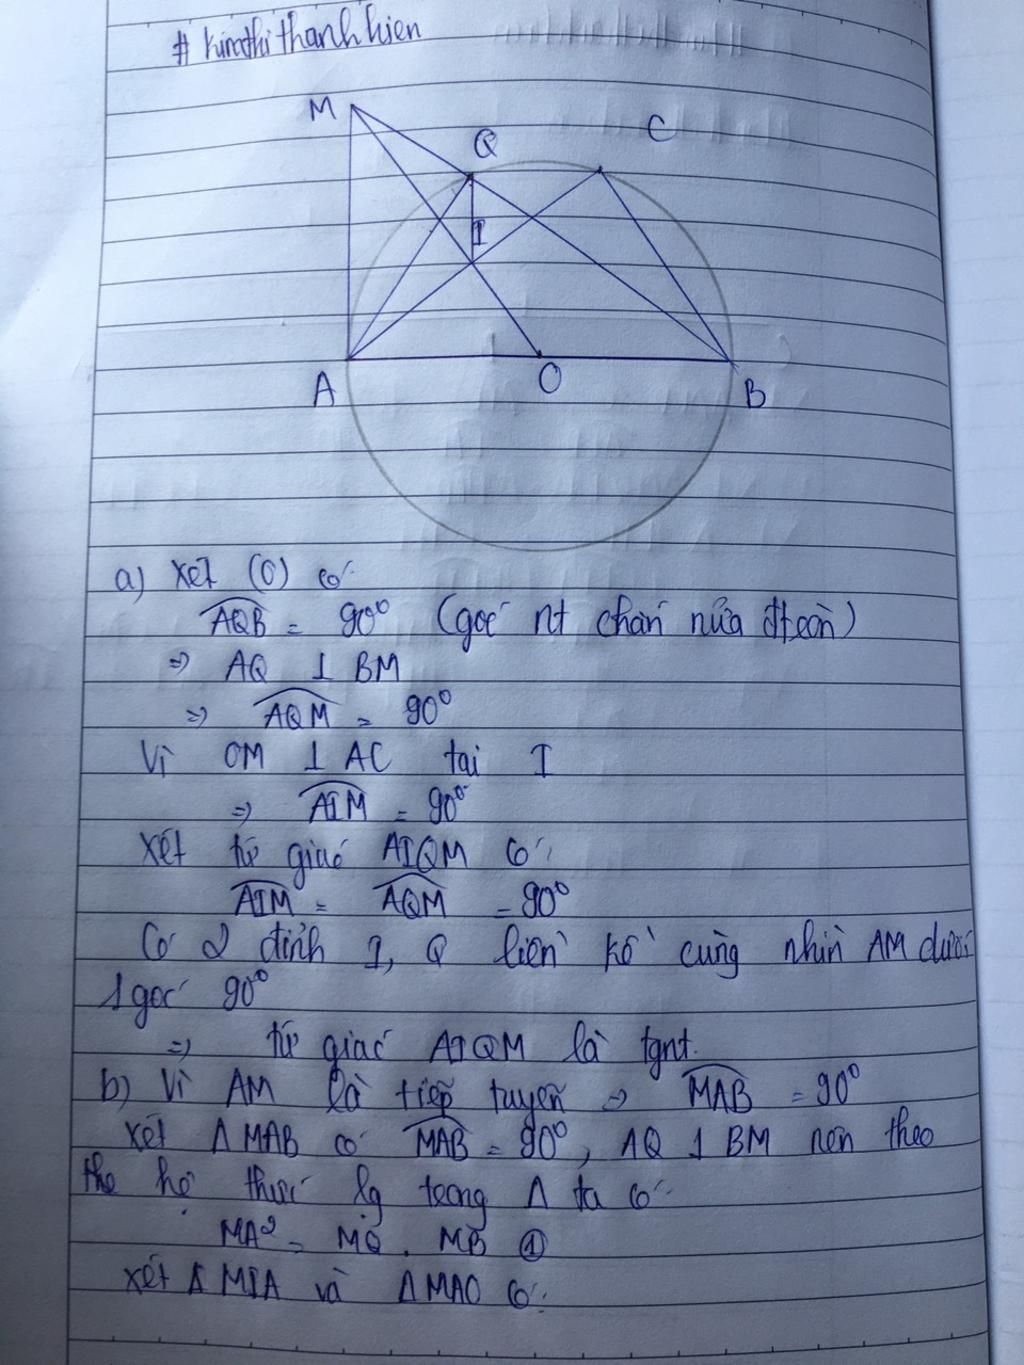 # kimthithanhhien
M
Q
C
I
A
O
B
a) Xét (O) có:
AQB = 90° (góc nt chắn nửa đtròn)
=> AQ ⊥ BM
=> AQM = 90°
Vì OM ⊥ AC tại I
=> AIM = 90°
Xét tứ giác AIQM có:
AIM = AQM = 90°
Có 2 đỉnh I, Q liền kề cùng nhìn AM dưới
1 góc 90°
=> tứ giác AIQM là tgnt.
b) Vì AM là tiếp tuyến => MAB = 90°
Xét Δ MAB có MAB = 90°, AQ ⊥ BM nên theo
the hệ thức lg trong Δ ta có:
MA² = MQ . MB ①
Xét Δ MIA và Δ MAO có: